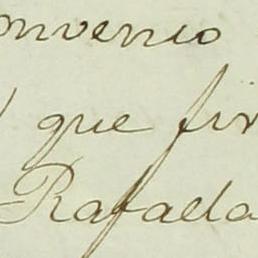 onvenio
que fir
Rafaela